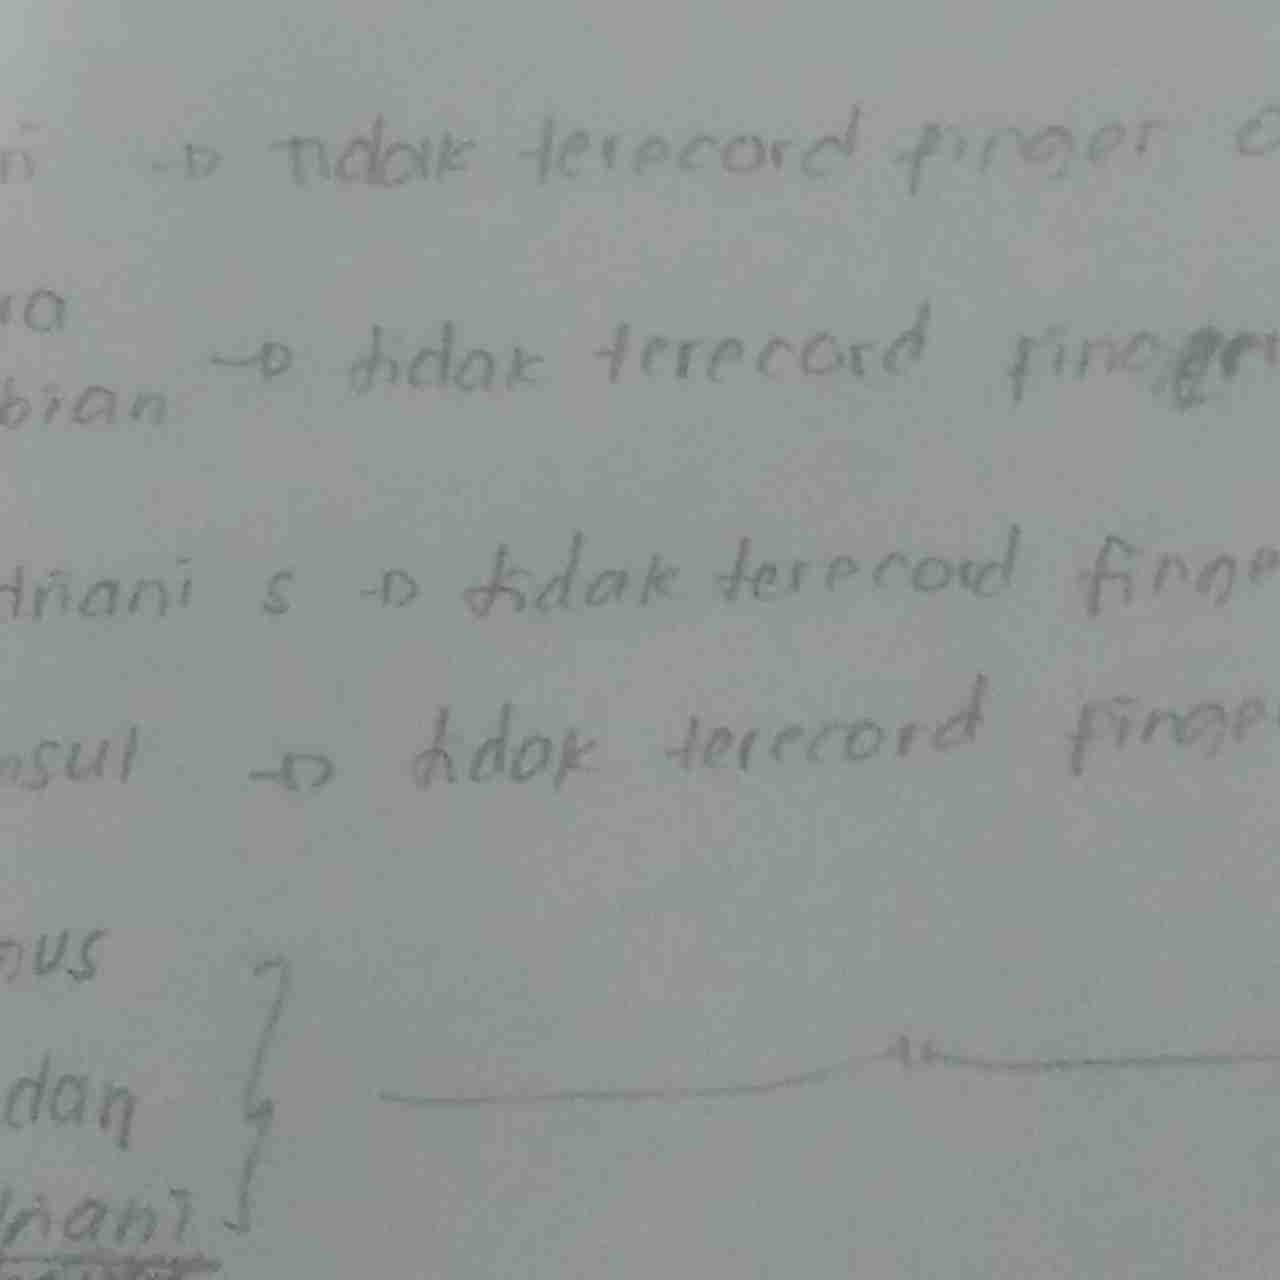 ni → tidak terecord finger
ua
bian → tidak terecord finger
triani s → tidak terecord finge
nsul → tidak terecord finge
nus
dan } — " —
riani